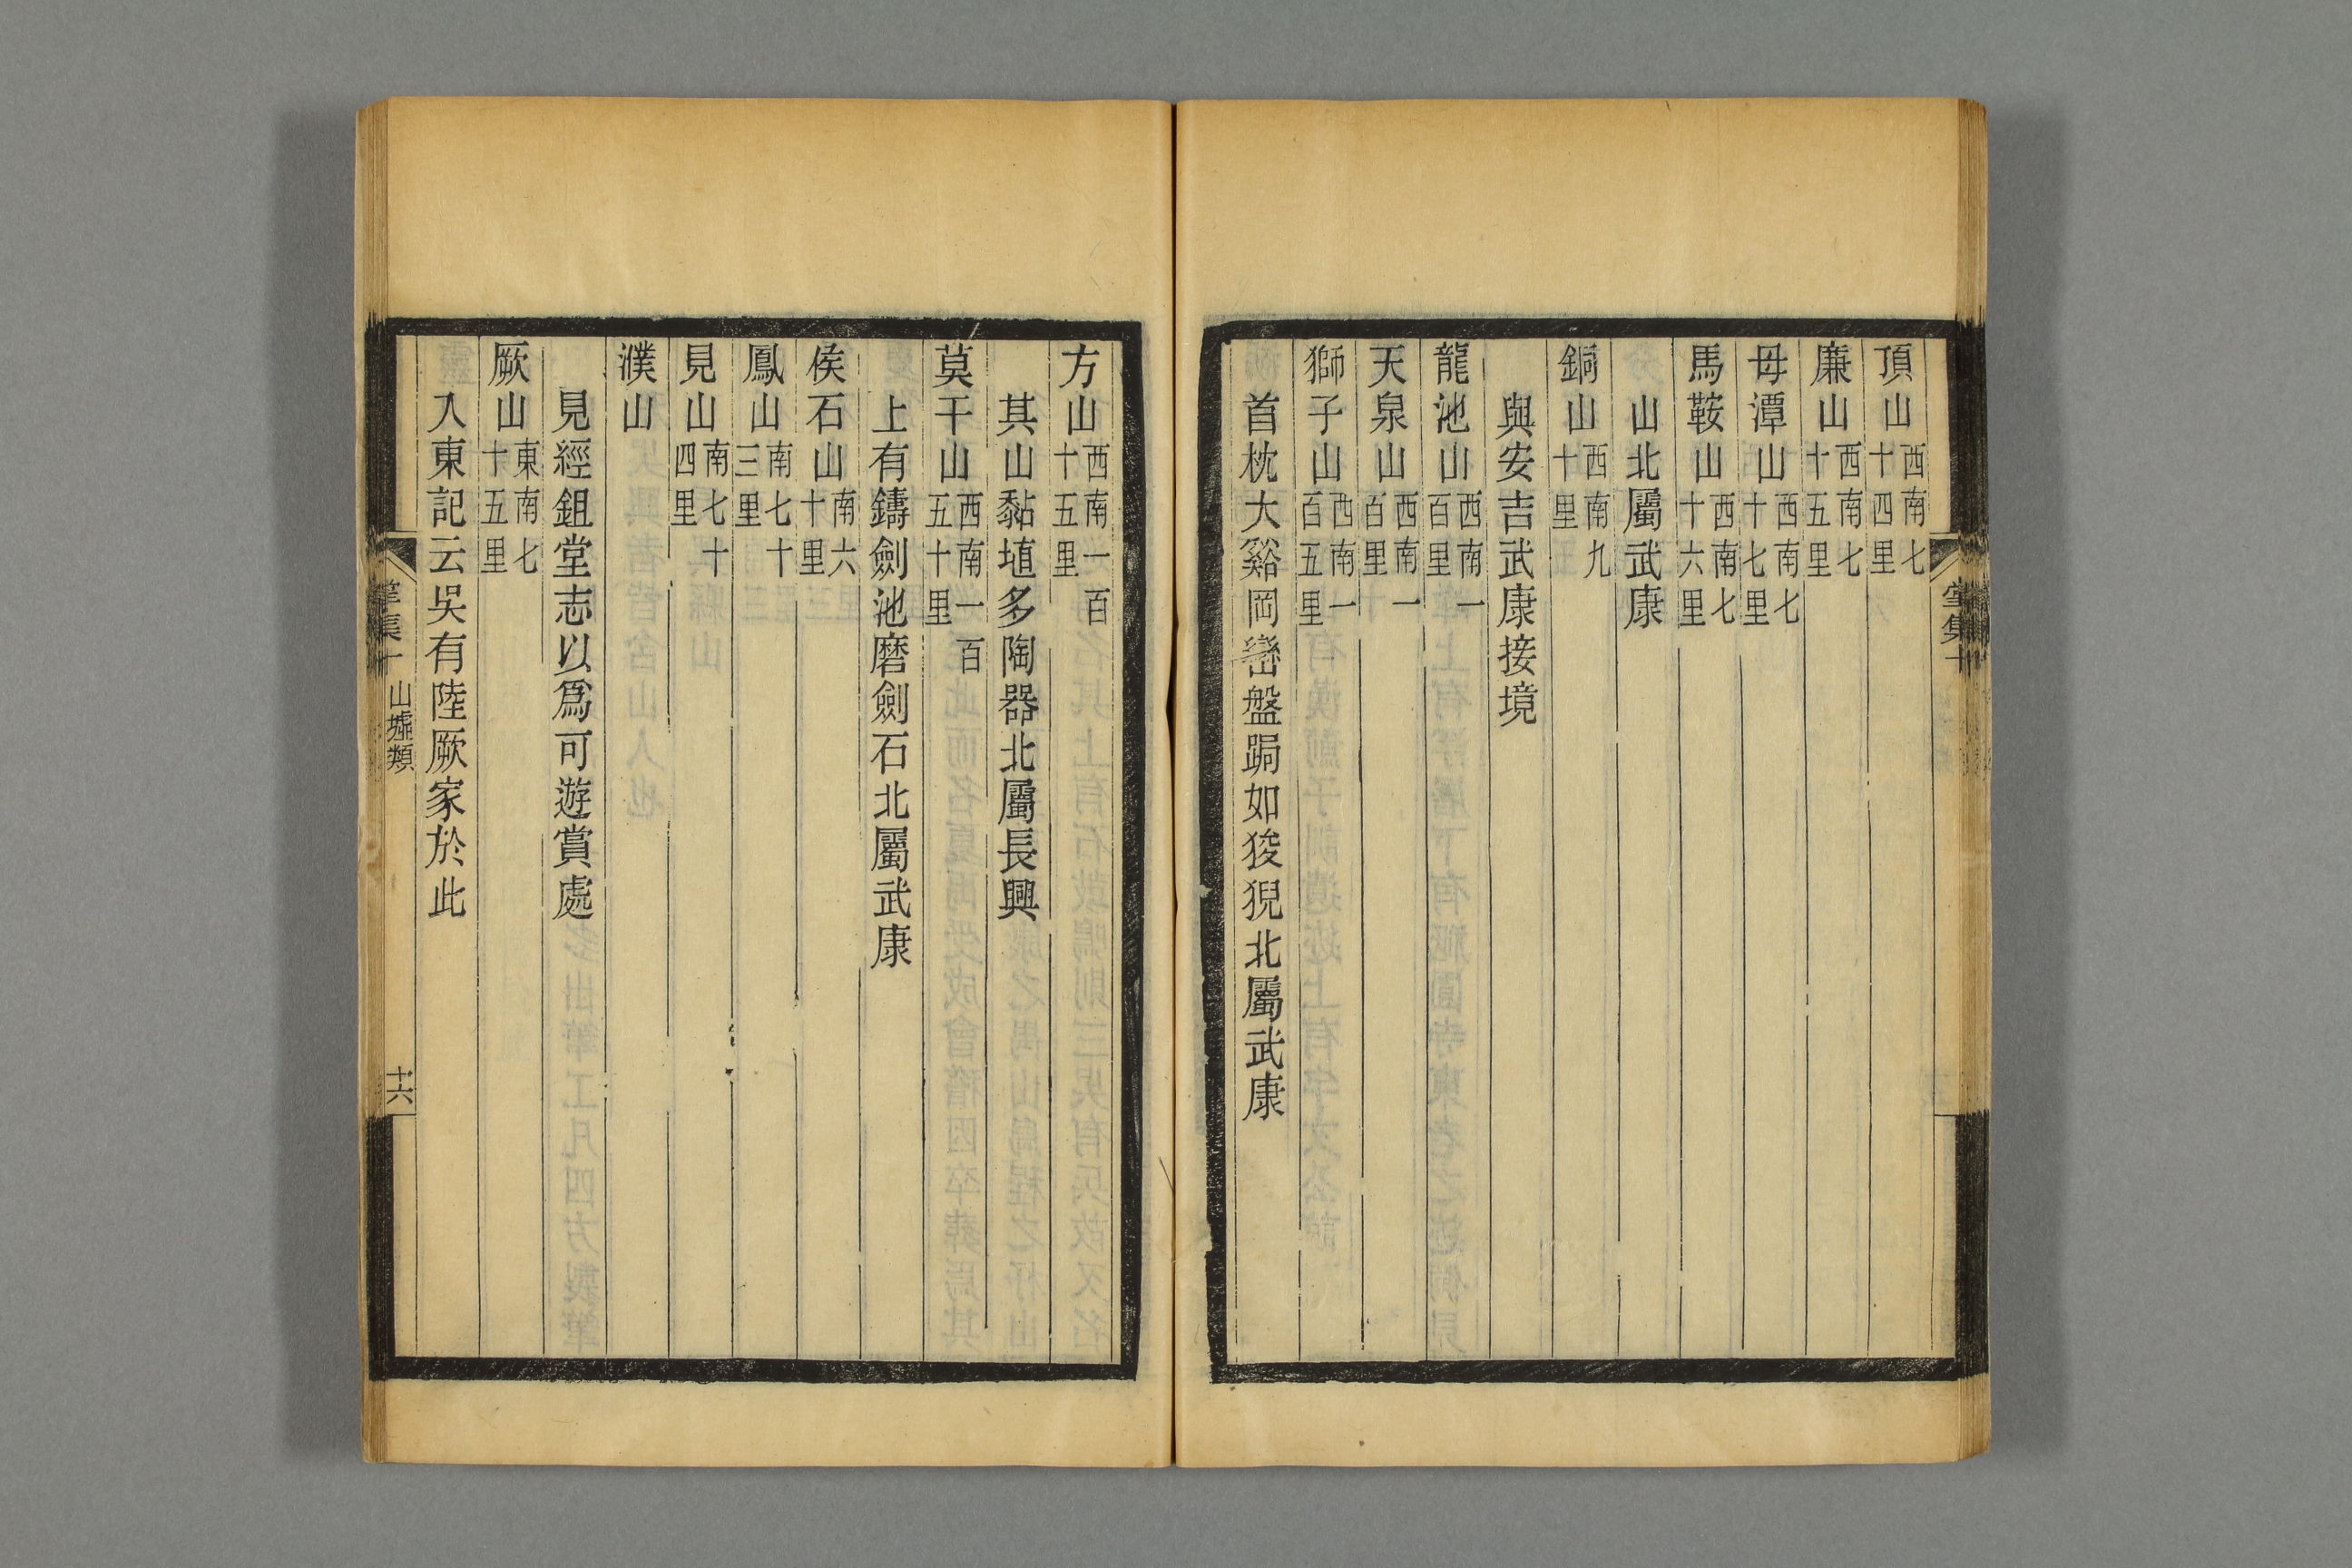 頂山西南七十四里
廉山西南七十五里
毋潭山西南七十七里
馬鞍山西南七十六里
山北屬武康
銅山西南九十里
與安吉武康接境
龍池山西南一百里
天泉山西南一百里
獅子山西南一百五里
首枕大谿岡巒盤跼如狻猊北屬武康
方山西南一百十五里
其山黏埴多陶器北屬長興
莫干山西南一百五十里
上有鑄劍池磨劍石北屬武康
侯石山南六十里
鳳山南七十三里
見山南七十四里
濮山
見經鉏堂志以爲可遊賞處
厥山東南七十五里
入東記云吳有陸厥家於此
山墟類
十六